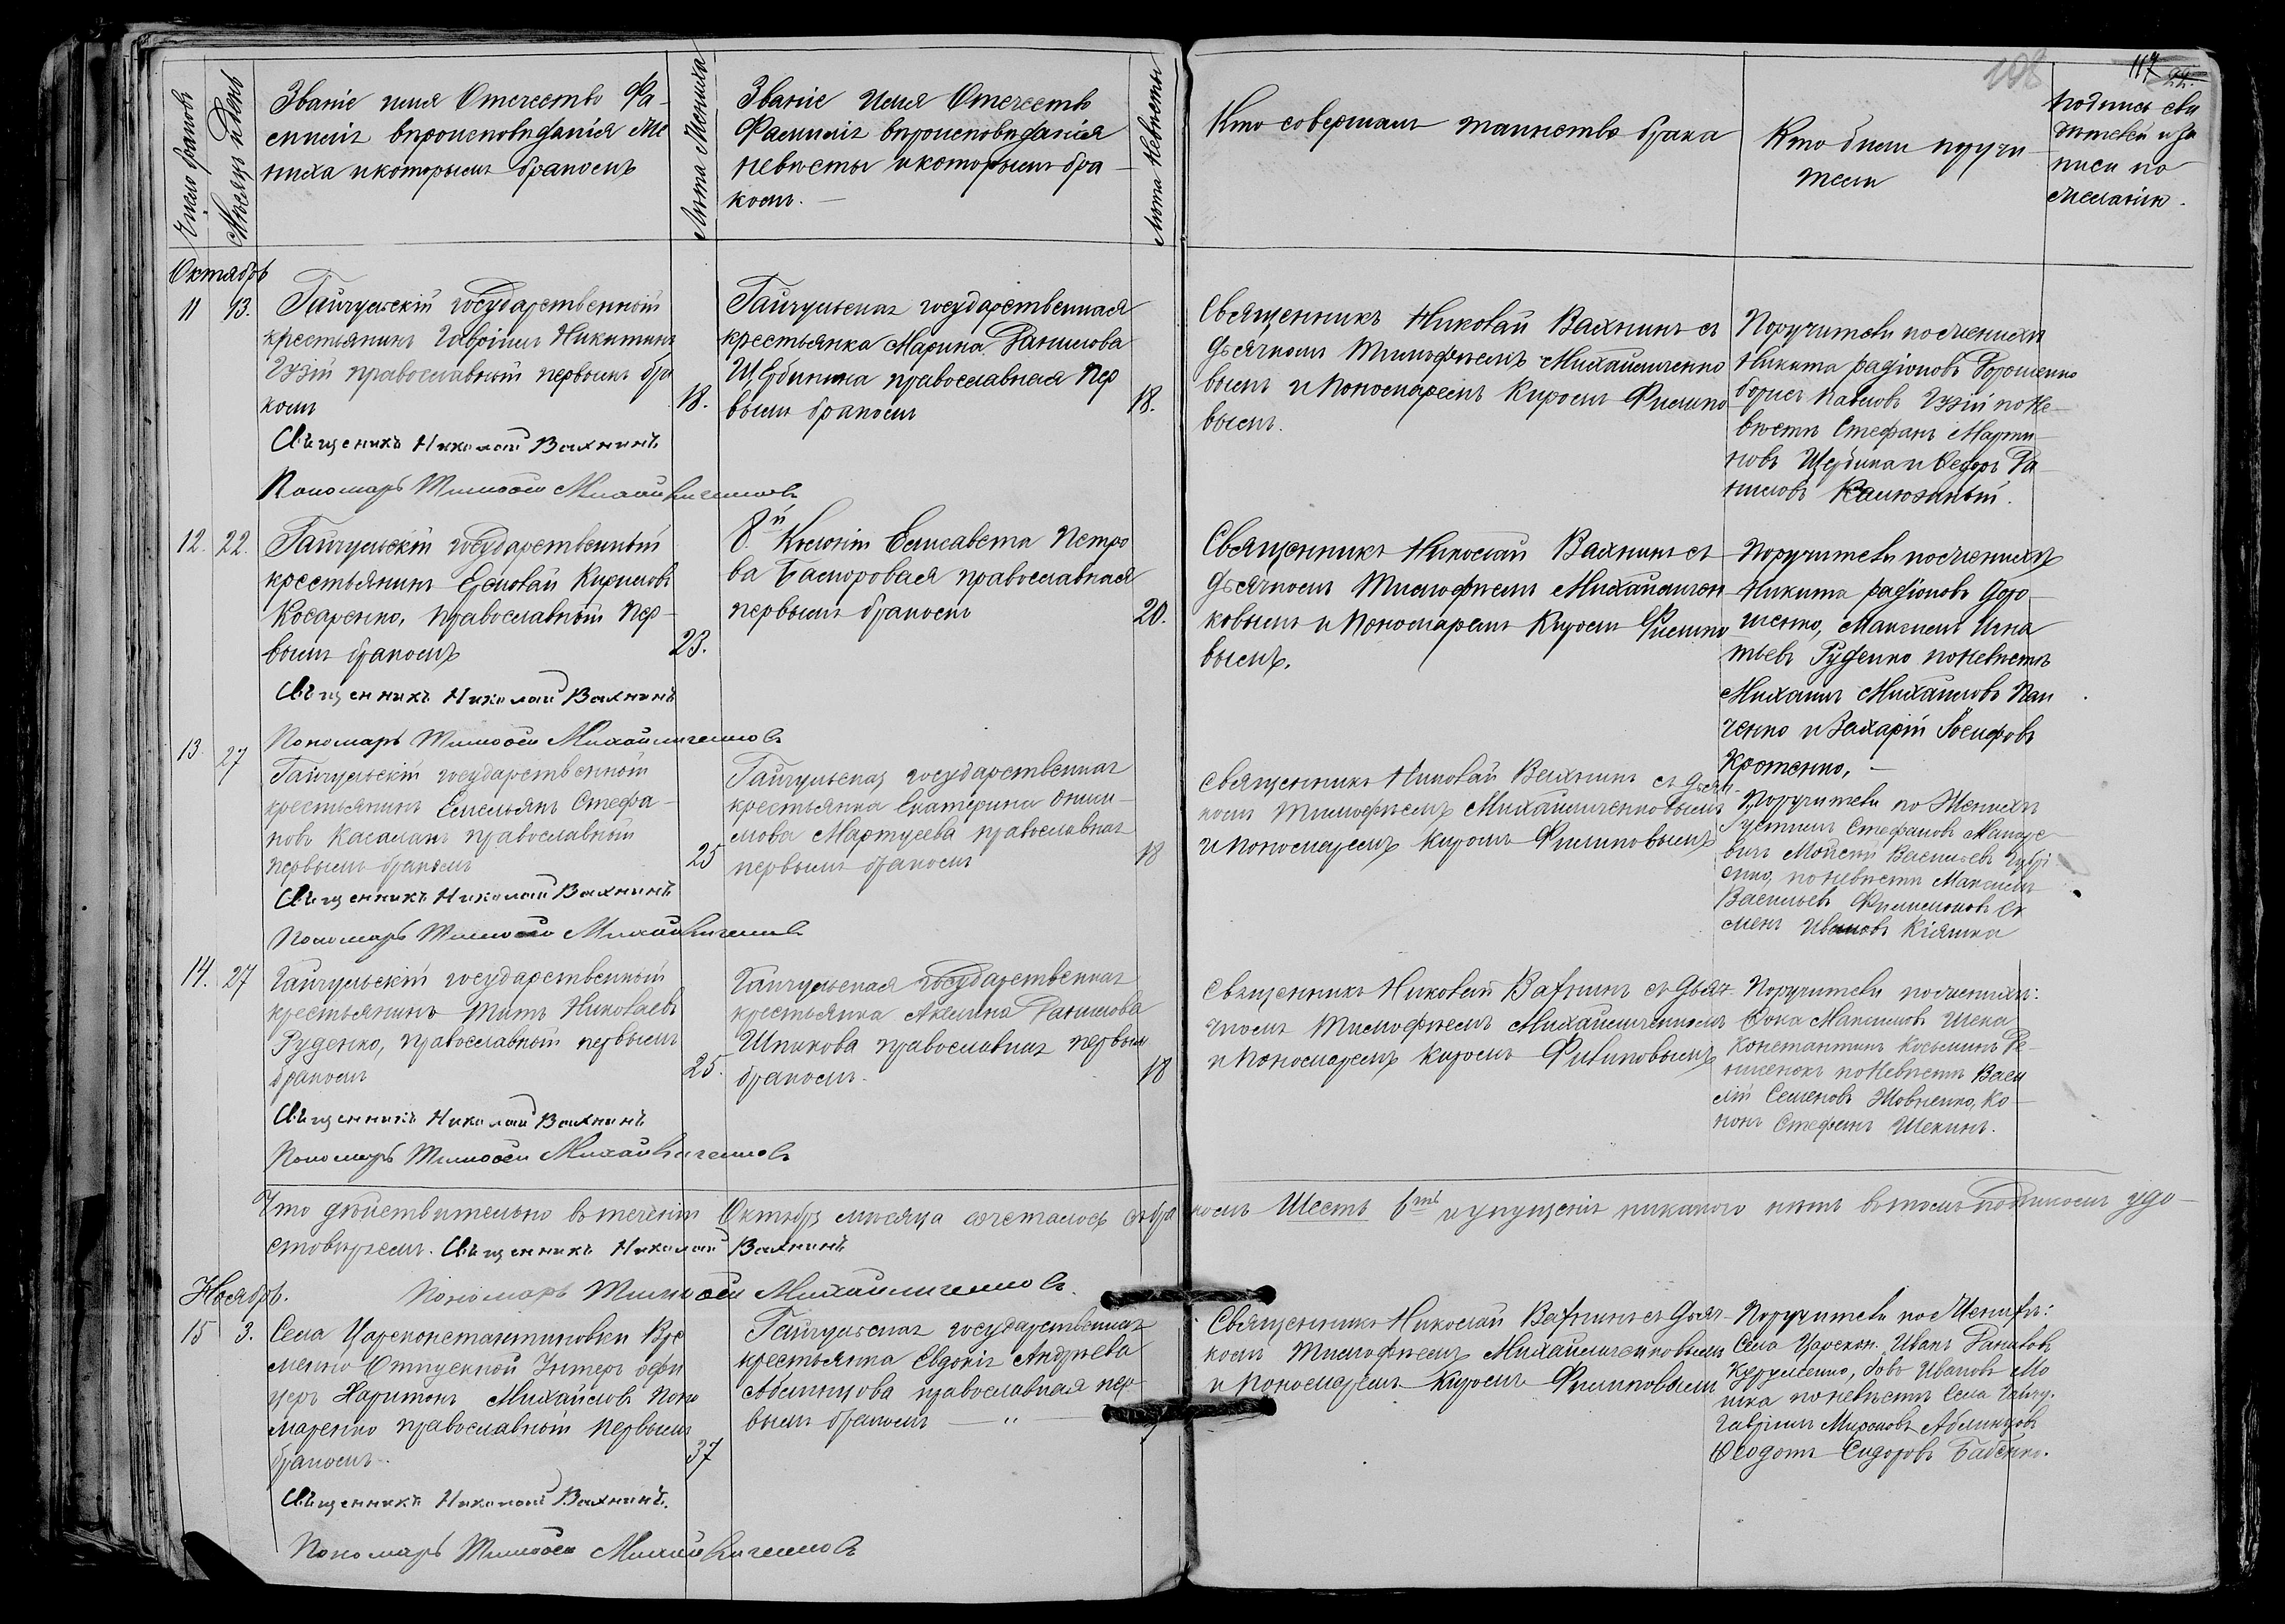 108
117
Число браковъ
Мѣсяцъ и День
Званіе имя Отечество Фа-
милія вѣроисповѣданія Же
ниха и которымъ бракомъ
Лѣта Жениха
Званіе Имя Отечество
Фамилія вѣроисповѣданія
невѣсты и которымъ бра-
комъ. —
Лѣта Невѣсты
Кто совершалъ таинство брака
Кто были поручи
тели
подпись сви
дѣтелей и за
писи по
желанію.
Октябрь
11 13.
Гайчульскій государственный
крестьянинъ Гавріилъ Никитинъ
православный первымъ бра
комъ
18.
Священникъ Николай Вахнинъ
Пономарь Тимофей Михайличенковъ
Гайчульская государственная
крестьянка Марина Данилова
Щербинина православная пер
вымъ бракомъ
18.
Священникъ Николай Вахнинъ съ
дьячкомъ Тимофѣемъ Михайличенко
вымъ и Пономаремъ Киромъ Филипо
вымъ.
Поручители по женихѣ
Никита радіоновъ Дорошенко
борисъ Павловъ по Не-
вѣстѣ Стефанъ Марти-
новъ Щербина и Федоръ Да-
ниловъ Калюжный.
12. 22.
Гайчульскій государственный
крестьянинъ Ермолай Кириловъ
Косаренко, православный пер-
вымъ бракомъ
23.
Священникъ Николай Вахнинъ
Пономарь Тимофей Михайличенковъ
8й Колоніи Елисавета Петро
ва православная
первымъ бракомъ
20.
Священникъ Николай Вахнинъ съ
дьячкомъ Тимофѣемъ Михайличен-
ковымъ и Пономаремъ Киромъ Филипо
вымъ.
Поручители по женихѣ
Никита радіоновъ Доро-
шенко, Максимъ Игна
тьевъ Руденко по невѣстѣ
Михаилъ Михаиловъ Пан
ченко и Захарій Іосифовъ
Кротенко, —
13. 27
Гайчульскій государственный
крестьянинъ Емельянъ Стефа-
новъ Касаланъ православный
первымъ бракомъ
25
Священникъ Николай Вахнинъ
Пономарь Тимофей Михайличенковъ
Гайчульская государственная
крестьянка Екатерина Онисі-
мова Мартусева православная
первымъ бракомъ
18
Священникъ Николай Вахнинъ съ дьяч-
комъ Тимофѣемъ Михайличенковымъ
и пономаремъ Киромъ Филиповымъ
Поручители по Женихѣ
Устимъ Стефановъ Макаре-
вичъ Мойсей Васильевъ
енко, по невѣстѣ Максимъ
Васильевъ Филимоновъ Се
менъ Ивановъ Кіяшка
14. 27
Гайчульскій государственный
крестьянинъ Титъ Николаевъ
Руденко, православный первымъ
бракомъ
25.
Священникъ Николай Вахнинъ
Пономарь Тимофей Михайличенковъ
Гайчульская государственная
крестьянка Акелина Данилова
Шпакова православная первым
бракомъ.
18
Священникъ Николай Вахнинъ съ дьяч-
комъ Тимофѣемъ Михайличенкомъ
и Пономаремъ Киромъ Филиповымъ
Поручители по женихѣ:
Фока Максимовъ Шека
Константинъ Косьминъ Ре-
по Невѣстѣ Васи
лій Семеновъ Жовненко, Ко-
нонъ Стефанъ Шекинъ.
Что дѣйствительно въ теченіи Октябрь мѣсяца сочеталось съ бракомъ Шесть 6ть и упущенія никакого нѣтъ въ томъ подписомъ удо-
стовѣряемъ. Священникъ Николай Вахнинъ
Пономарь Тимофей Михайличенковъ.
Ноябрь.
15 3.
Села Цареконстантиновки Вре
менно Отпускной Унтеръ офи
церъ Харитонъ Михайловъ Поно
маренко православный первымъ
бракомъ.
37
Священникъ Николай Вахнинъ.
Пономарь Тимофей Михайличенковъ
Гайчульская государственная
крестьянка Евдокія Андрѣева
Аблинцова православная пер-
вымъ бракомъ — " —
Священникъ Николай Вахнинъ съ дьяч-
комъ Тимофѣемъ Михайличенковымъ
и Пономаремъ Киромъ Филиповымъ
Поручители по Женихѣ:
Села Царекон. Иванъ Даниловъ
Іовъ Ивановъ Мо
шка по невѣстѣ Села Гайчу.
Гавріилъ Мироновъ Аблинцовъ
Феодотъ Сидоровъ Бабенко.